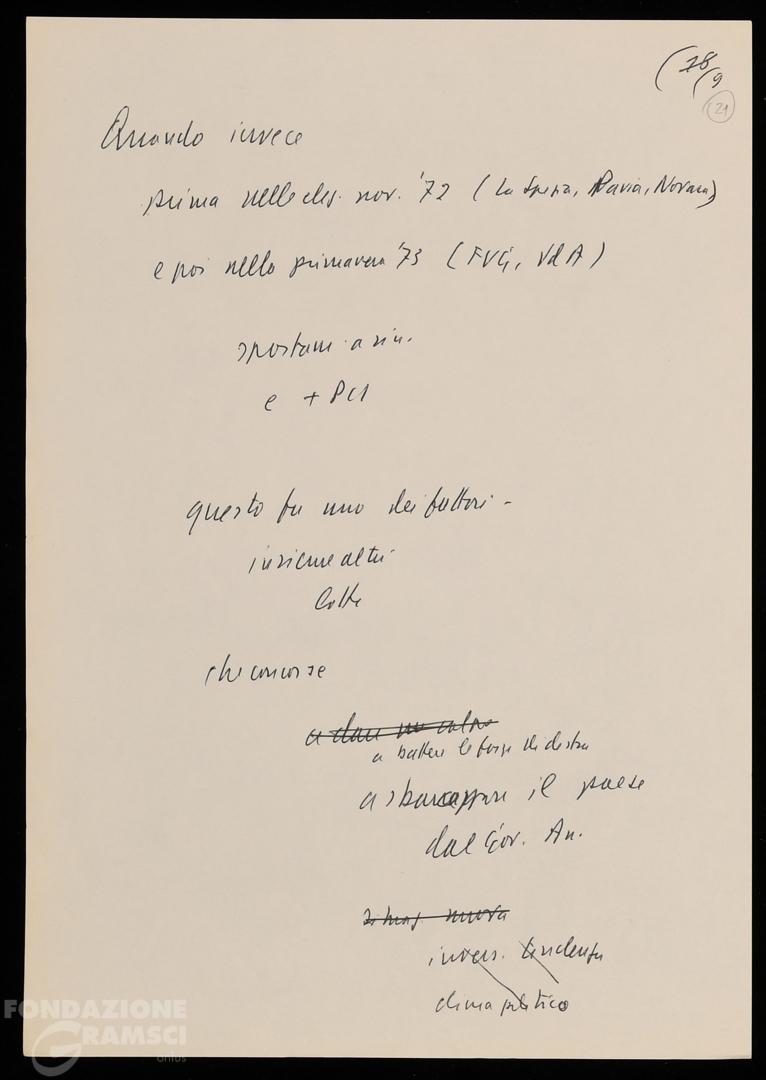 (78/9
(21)
Quando invece
prima nelle elez. nov. '72 (La Spezia, Pavia, Novara)
e poi nella primavera '73 (FVG, VdA)
spostam. a sin.
e + PCI
questo fu uno dei fattori -
insieme altri
lotte
che concorse
a dare un colpo
a battere le forze di destra
a sbarazzare il paese
dal Gov. An.
nuova
invers. tendenza
clima politico
FONDAZIONE
GRAMSCI
onlus